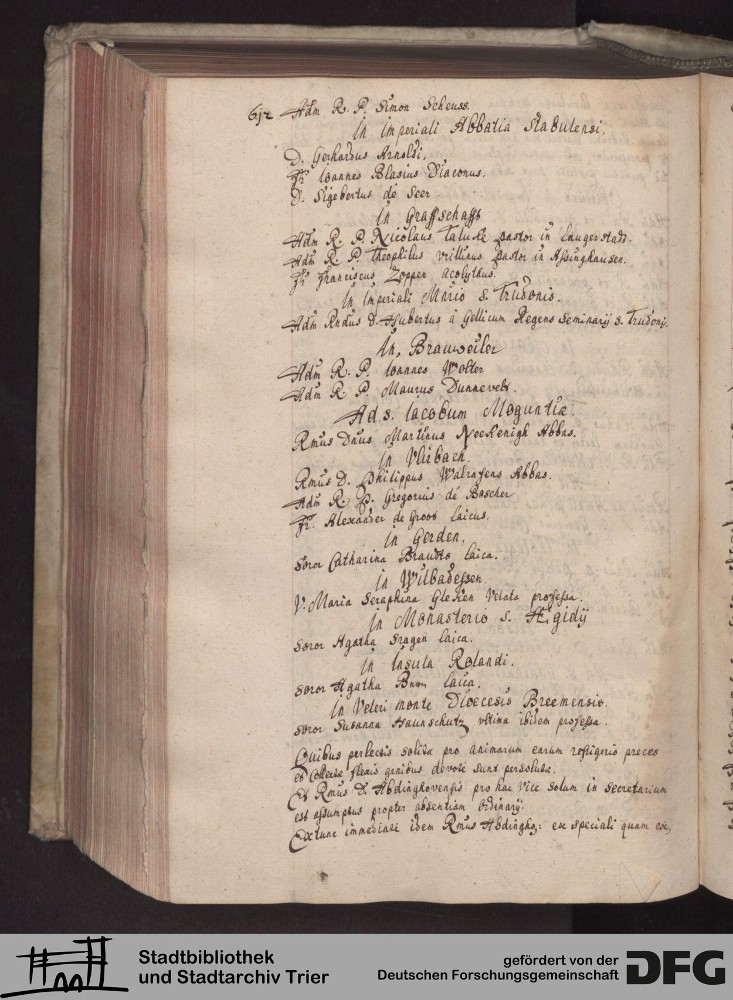 612 Adm R. P. Simon Scheuss.
In Imperiali Abbatia Stabulensi.
D. Gerhardus Arnoldi,
Fr. Ioannes Blasius Diaconus.
D. Sigebertus de Seer
In Graffschafft
Adm R. P. Nicolaus pastor in
Adm R. P. Theophilus pastor in Assinghausen.
Fr. Franciscus Zoppen acolythus.
In Imperiali S. Trudonis.
Adm Rndus D. Hubertus à Gellicum Regens Seminarij S. Trudonis
In Brauweiler
Adm R. P. Ioannes Wolter
Adm R. P. Maurus
Ad S. Iacobum Moguntiæ.
Rmus Dnus Martinus Abbas.
In
Rmus D. Philippus Abbas.
Adm R. P. Gregorius de Boscher
Fr. Alexander de Groot laicus.
In Gerden.
Soror Catharina laica.
In Wilbadessen.
V. Maria Seraphina Velata professa.
In Monasterio S. Ægidij
Soror Agatha laica.
In Insula Rolandi.
Soror Agatha laica.
In Veteri monte Dioecesis Breemensis.
Soror Susanna Haunschutz vltima ibidem professa.
Quibus perlectis solita pro animarum earum refrigerio preces
et Collectæ flexis genibus devotè sunt persolutæ.
Et Rmus D. Abdinghovensis pro hac vice solum in secretarium
est assumptus propter absentiam Ordinarij.
Extunc immediatè idem Rmus ex speciali quam
Stadtbibliothek
und Stadtarchiv Trier
gefördert von der
Deutschen Forschungsgemeinschaft
DFG